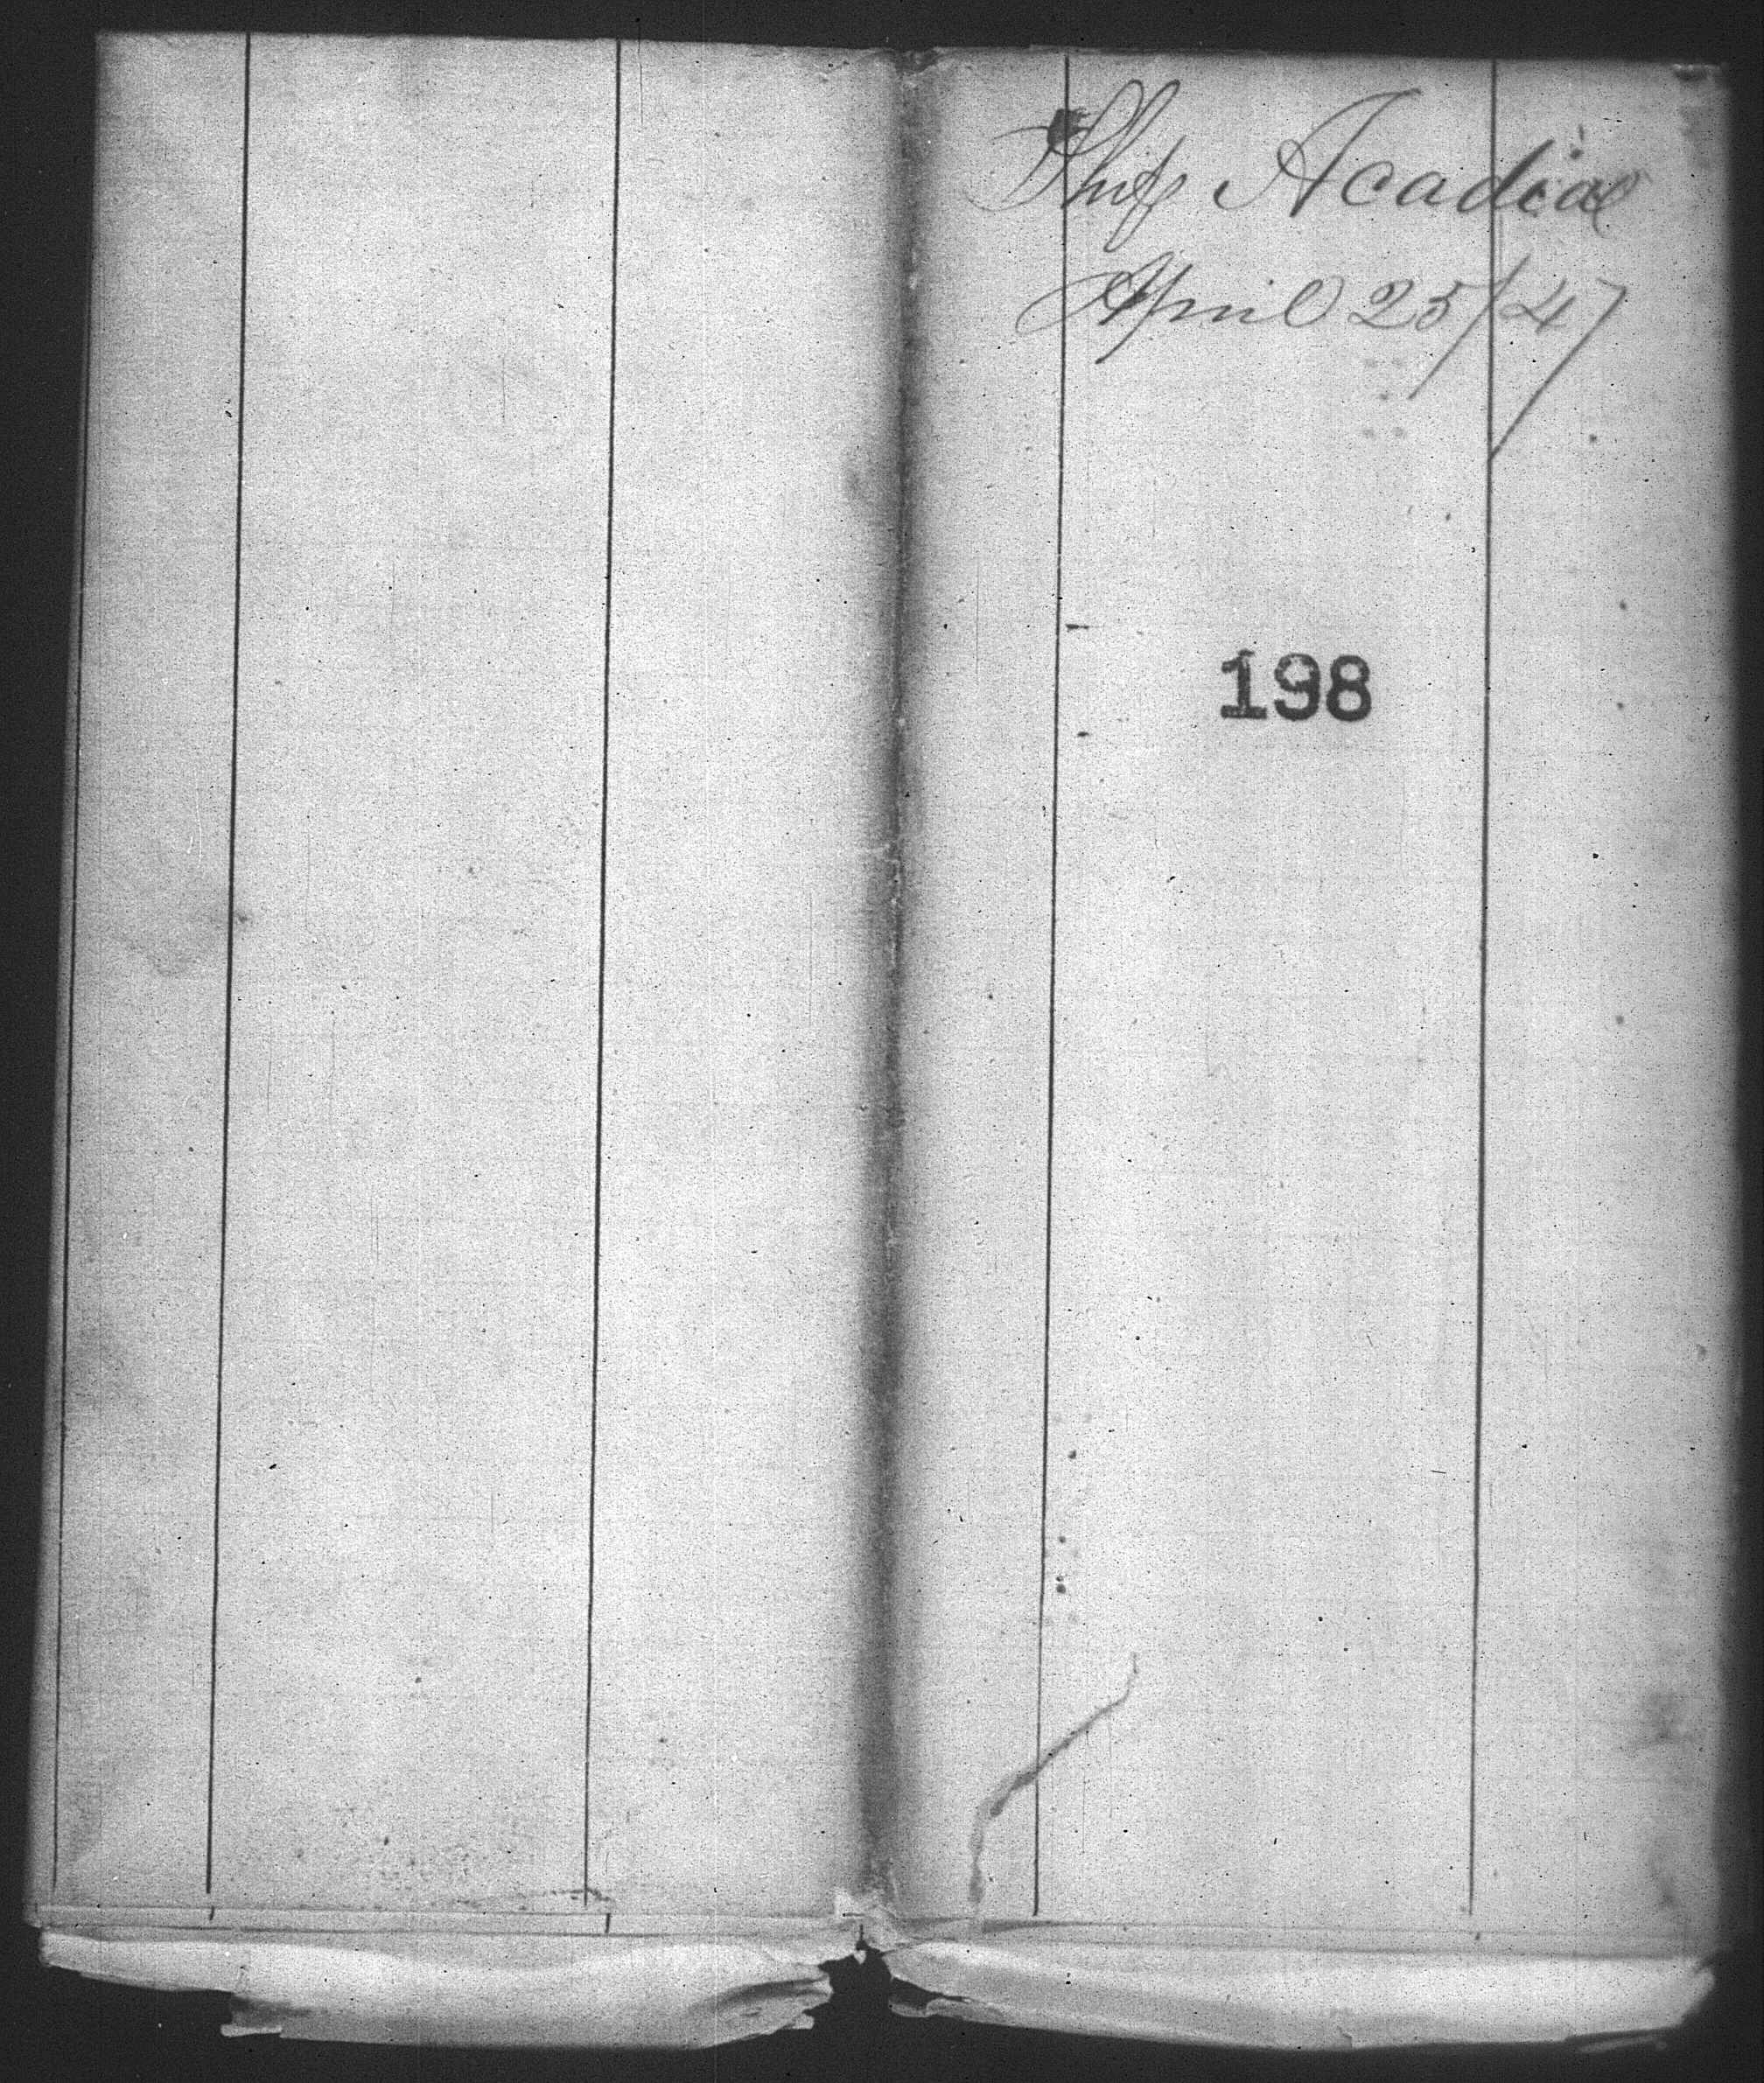 Ship Acadia
April 25/47
198